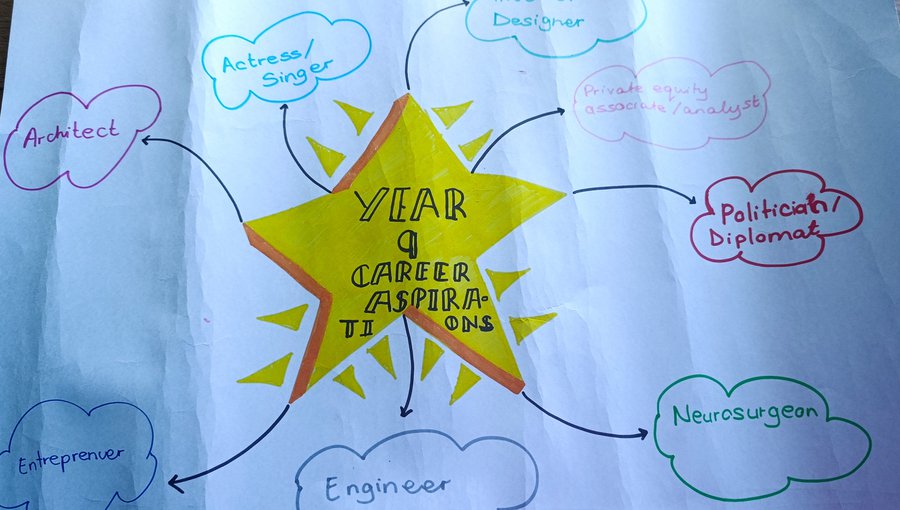 Designer
Actress/
Singer
Private equity
associate/analyst
Architect
Politician/
Diplomat
YEAR
9
CAREER
ASPIRA-
TI ONS
Neurosurgeon
Entreprenuer
Engineer